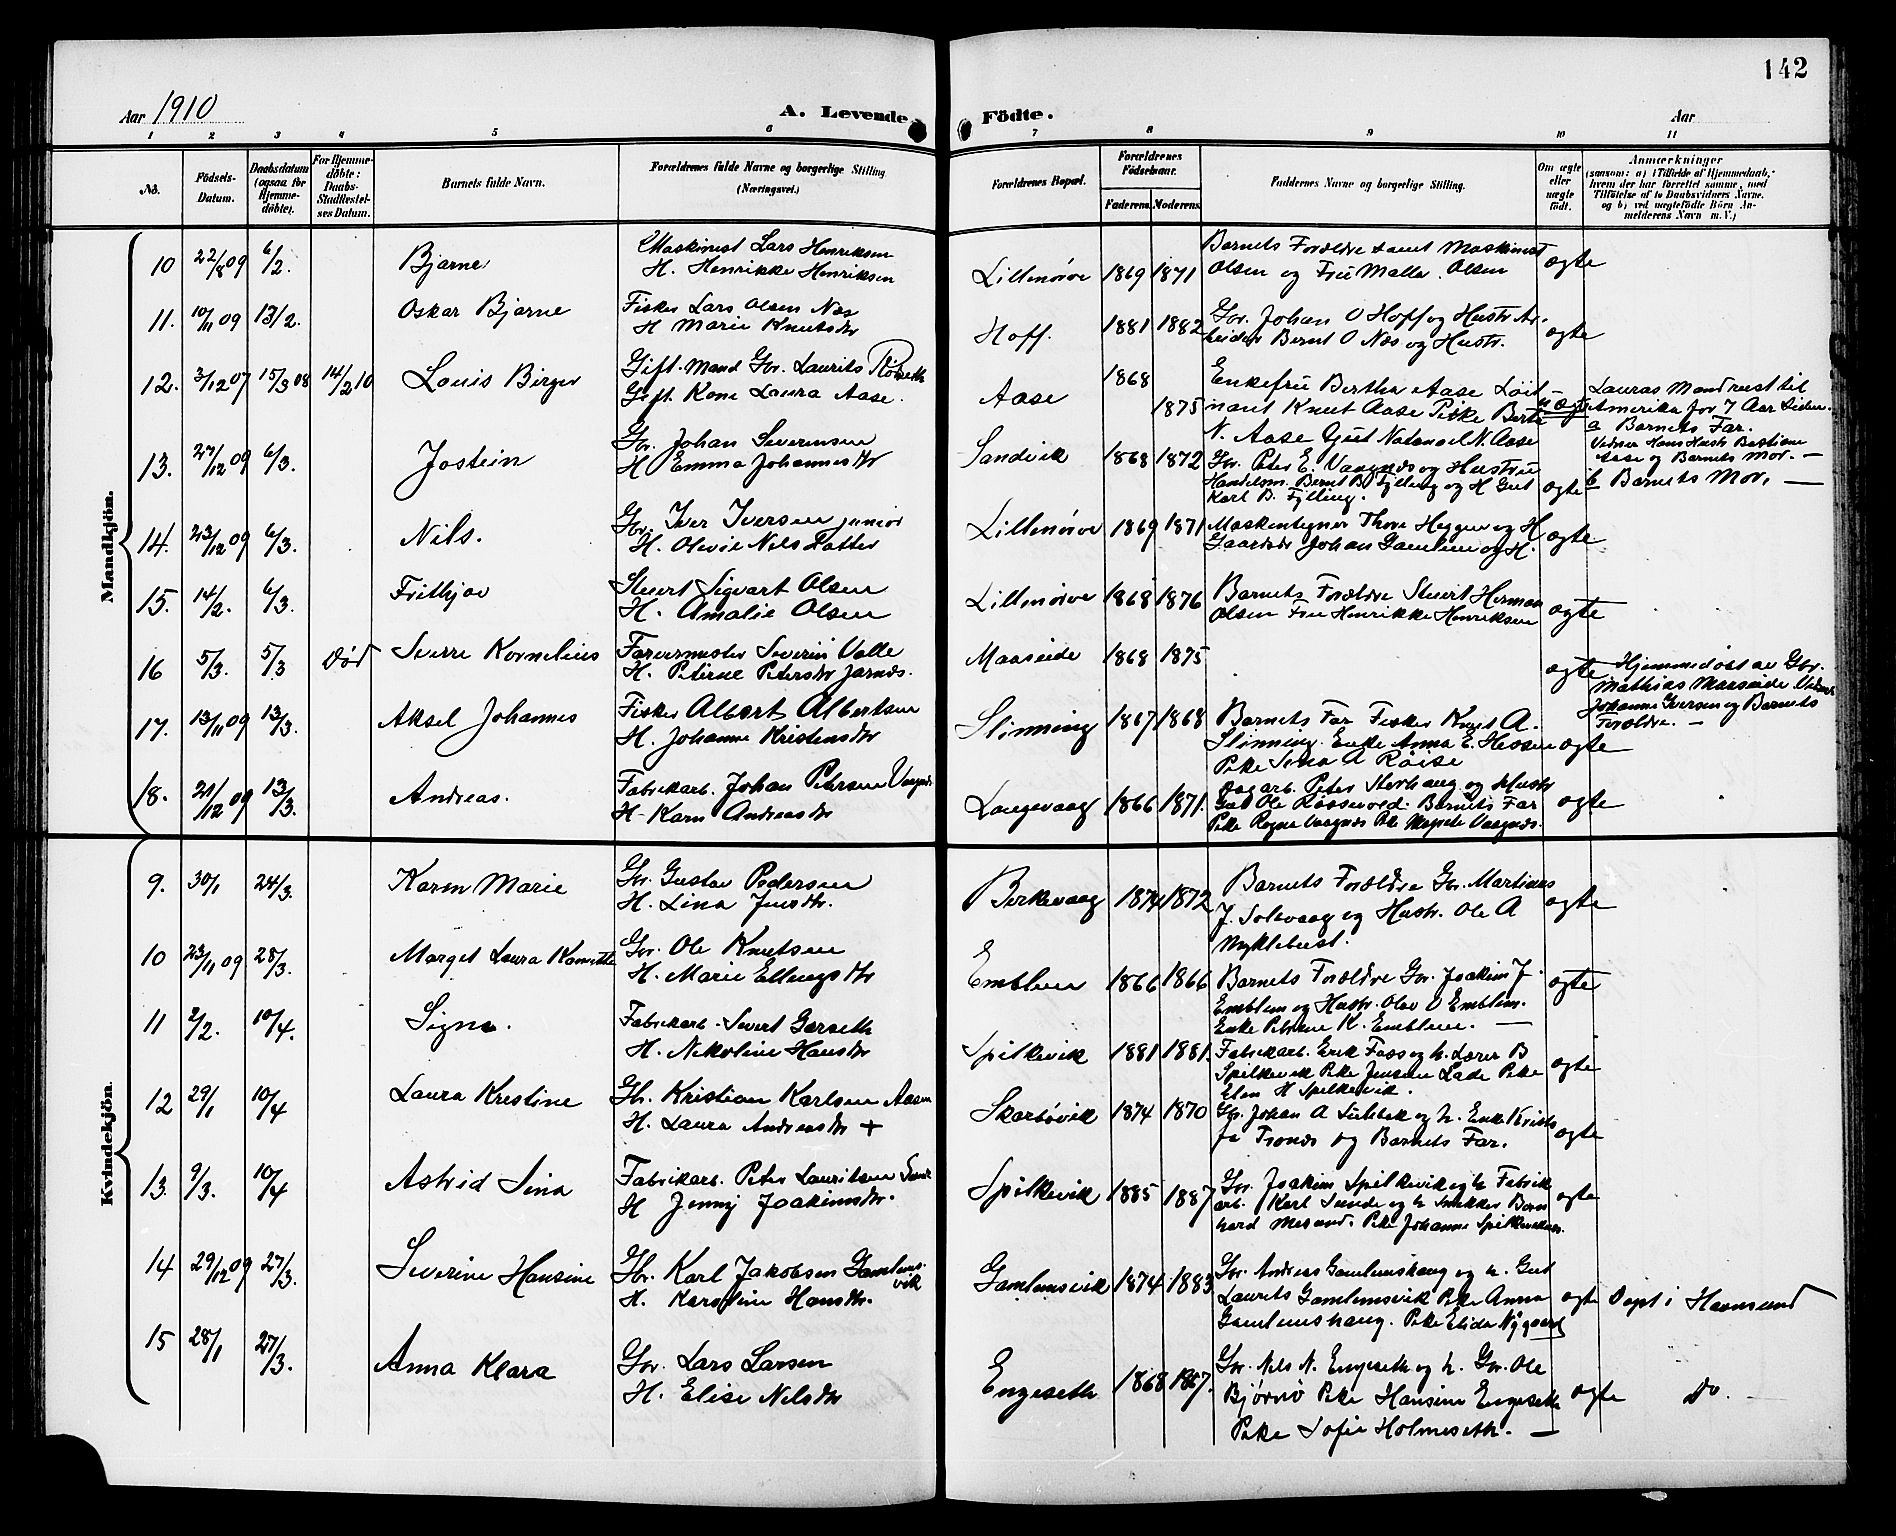 142
Aar 1910
A. Levende Födte.
Aar
1 2 3 4 5 6 7 8 9 10 11
No.
Födsels-Datum.
Daabsdatum (ogsaa for Hjemme-döbte).
For Hjemme-döbte: Daabs-Stadfestel-ses Datum.
Barnets fulde Navn.
Forældrenes fulde Navne og borgerlige Stilling (Næringsvei.)
Forældrenes Bopæl.
Forældrenes Födselsaar.
Faderens. Moderens.
Faddernes Navne og borgerlige Stilling.
Om ægte eller uægte födt.
Anmærkninger
(saasom: a) i Tilfælde af Hjemmedaab, hvem der har forrettet samme, med Tilföielse af to Daabsvidners Navne, og b) ved uægtefödte Börn An-melderens Navn m. V.)
Mandkjön.
10 22/8 09 6/2. Bjarne Maskinist Lars Henriksen
H. Henrikke Henriksen
Lillenörve 1869 1871 Barnets Forældre samt Maskinist
Olsen og Fru Malla Olsen ægte
11. 10/11 09 13/2. Oskar Bjarne Fisker Lars Olsen Næs
H Marie Knutsdtr
Hoff. 1881 1882 Gbr. Johan O Hoff og Hustr Ar-
beider Bernt O Næs og Hustr. ægte
12. 3/12 07 15/3 08 14/2 10 Louis Birger Gift. Mand Gbr. Laurits Röseth
Gift. Kone Laura Aase.
Aase 1868 1875 Enkefru Bertha Aase Löit
nant Knut Aase Pike Berte
N. Aase Gut Natanael N. Aase
uægte
Lauras Mand reist til
Amerika for 7 Aar siden.
a Barnets Far.
Vidner Hans Hustr Bastiane
Aase og Barnets Mor. —
b Barnets Mor. —
13. 27/12 09 6/3. Jostein Gbr. Johan Severinsen
H Emma Johannesdtr
Sandvik 1868 1872 Gbr. Peter E. Vaagnæs og Hustru
Handelsm. Bernt B. Fylling og H Gut
Karl B. Fylling. ægte
14. 23/12 09 6/3. Nils. Gbr. Iver Iversen junior
H. Olivie Nils Datter
Lillenörve 1869 1871 Maskintegner Thore Heggen og H
Gaardbr Johan Gamlem og H. ægte
15. 14/2. 6/3. Fritjov Stuert Sigvart Olsen
H. Amalie Olsen
Lillenörve 1868 1876 Barnets Forældre Stuert Herman
Olsen Fru Henrikke Henriksen ægte
16 5/3. 5/3 död Sverre Kornelius Farvermester Severin Valle
H. Petrine Petersdtr Jarnæs.
Maaseide 1868 1875 ægte Hjemmedöbt av Gbr.
Mathias Maaseide Vidner
Johanne Iversen og Barnets
Forældre. —
17. 13/11 09 13/3. Aksel Johannes Fisker Albert Albertsen
H. Johanne Kristensdtr
Slinning 1867 1868 Barnets Far Fisker Knut A.
Slinning. Enke Anna E. Hessen
Pike Sina A Röise ægte
18. 21/12 09 13/3. Andreas. Fabrikarb. Johan Petersen Vaagnæs
H. Karn Andreasdtr
Langevaag 1866 1871. Sagarb. Peter Storhaug og Hustr
Gut Ole Rössevold. Barnets Far
Pike Ragna Vaagnæs Pike Magrete Vaagnæs. ægte
Kvindekjön.
9. 30/1 24/3. Karen Marie Gbr. Gustav Pedersen
H. Lina Jensdtr.
Birkevaag 1874 1872 Barnets Forældre Gbr. Martinus
J. Solevaag og Hustr. Ole A
Myklebust. ægte
10 23/11 09 28/3. Marget Laura Gbr. Ole Knutsen
H. Marie Ellingsdtr
Emblem 1866 1866 Barnets Forældre Gbr. Joakim J.
Emblem og Hustr. Olav O Emblem.
Enke Petrine K. Emblem. — ægte
11 2/2. 10/4. Signe. Fabrikarb. Sivert Garseth
H. Nikoline Hansdtr
Spilkevik 1881 1881. Fabrikarb. Erik Faas og h. Lærer B
Spilkevik Pike Jensine Lade Pike
Elen H Spilkevik. ægte
12 29/1 10/4 Laura Kristine Gbr. Kristian Karlsen Aasen
H. Laura Andreasdtr +
Skarbövik 1874 1870 Gbr. Johan A Sulebak og h. Enke Kristi
fa Fronæs og Barnets Far. ægte
13. 9/3. 10/4 Astrid Sina Fabrikarb. Peter Lauritsen Sunde
H Jenny Joakimsdtr.
Spilkevik 1885 1887. Gbr. Joakim Spilkevik og h Fabrik
arb. Karl Sunde og h Snekker Bern
hard Mesund. Pike Johanne Spilkeviknæs. ægte
14 29/12 09 27/3. Severine Hansine Gbr. Karl Jakobsen Gamlems-
vik
H. Karoline Hansdtr.
Gamlemsvik 1874 1883. Gbr. Andreas Gamlemshaug og h. Gut
Laurits Gamlemsvik Pike Anna
Gamlemshaug. Pike Elida Nygaard ægte Döpt i Havnsund
15 28/1 27/3. Anna Klara Gbr. Lars Larsen
H. Elise Nilsdtr
Engeseth 1868 1867. Gbr. Nils N. Engeseth og h. Gbr. Ole
Björnö Pike Hansine Engeseth
Pike Sofie Holmeseth. — ægte do.